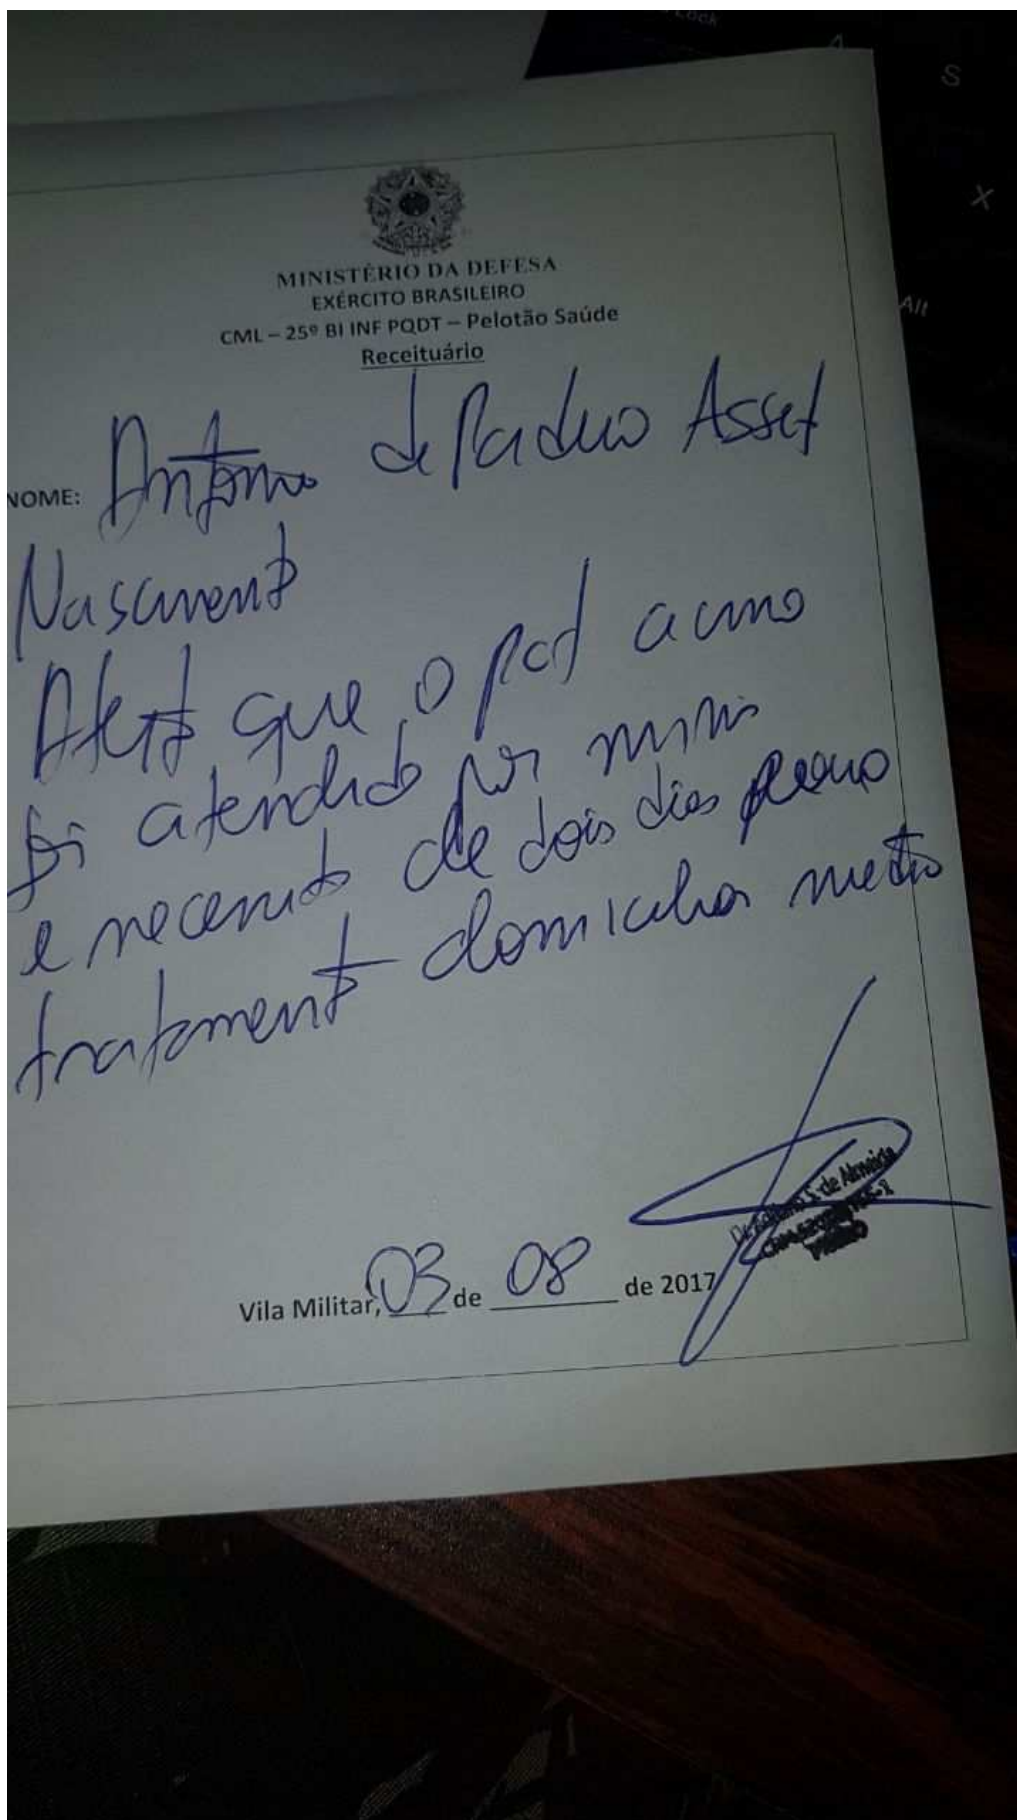 MINISTÉRIO DA DEFESA
EXÉRCITO BRASILEIRO
CML – 25º BI INF PQDT – Pelotão Saúde
Receituário
NOME: Antônio de Padua Assef
Nascimento
Atesto que o pct acima
foi atendido por mim
e necessita de dois dias para
tratamento domiciliar
de Almeida
Vila Militar, 03 de 08 de 2017
Alt
S
X